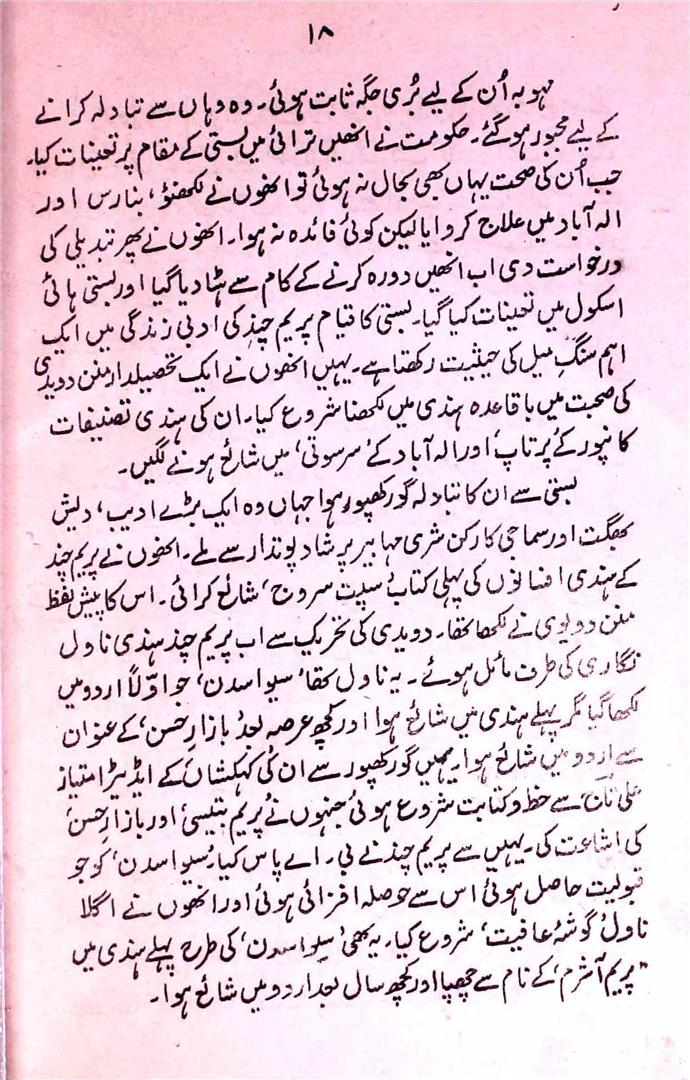 ۱۸
مہوبہ اُن کے لیے بُری جگہ ثابت ہوئی۔ وہ وہاں سے تبادلہ کرانے
کے لیے مجبور ہوگئے۔ حکومت نے انھیں ترائی میں بستی کے مقام پر تعینات کیا۔
جب اُن کی صحت یہاں بھی بحال نہ ہوئی تو انھوں نے لکھنؤ، بنارس اور
الہ آباد میں علاج کروایا لیکن کوئی فائدہ نہ ہوا۔ انھوں نے پھر تبدیلی کی
درخواست دی اب انھیں دورہ کرنے کے کام سے ہٹا دیا گیا اور بستی ہائی
اسکول میں تعینات کیا گیا۔ بستی کا قیام پریم چند کی ادبی زندگی میں ایک
اہم سنگِ میل کی حیثیت رکھتا ہے۔ یہیں انھوں نے ایک تحصیلدار منن دویدی
کی صحبت میں باقاعدہ ہندی میں لکھنا شروع کیا۔ ان کی ہندی تصنیفات
کانپور کے ’پرتاپ‘ اور الہ آباد کے ’سرسوتی‘ میں شائع ہونے لگیں۔
بستی سے ان کا تبادلہ گورکھپور ہوا جہاں وہ ایک بڑے ادیب، دیش
بھگت اور سماجی کارکن شری مہابیر پرشاد پوتدار سے ملے۔ انھوں نے پریم چند
کے ہندی افسانوں کی پہلی کتاب ’سپت سروج‘ شائع کرائی۔ اس کا پیش لفظ
منن دویدی نے لکھا تھا۔ دویدی کی تحریک سے اب پریم چند ہندی ناول
نگاری کی طرف مائل ہوئے۔ یہ ناول تھا ’سیوا سدن‘ جو اوّلاً اردو میں
لکھا گیا مگر پہلے ہندی میں شائع ہوا اور کچھ عرصہ بعد ’بازارِ حسن‘ کے عنوان
سے اردو میں شائع ہوا۔ یہیں گورکھپور سے ان کی ’کہکشاں‘ کے ایڈیٹر امتیاز
علی تاج سے خط و کتابت شروع ہوئی جنہوں نے ’پریم بتیسی‘ اور ’بازارِ حسن‘
کی اشاعت کی۔ یہیں سے پریم چند نے بی۔ اے پاس کیا۔ ’سیوا سدن‘ کو جو
قبولیت حاصل ہوئی اس سے حوصلہ افزائی ہوئی اور انھوں نے اگلا
ناول ’گوشۂ عافیت‘ شروع کیا۔ یہ بھی ’سیوا سدن‘ کی طرح پہلے ہندی میں
”پریم آشرم‘ کے نام سے چھپا اور کچھ سال بعد اردو میں شائع ہوا۔